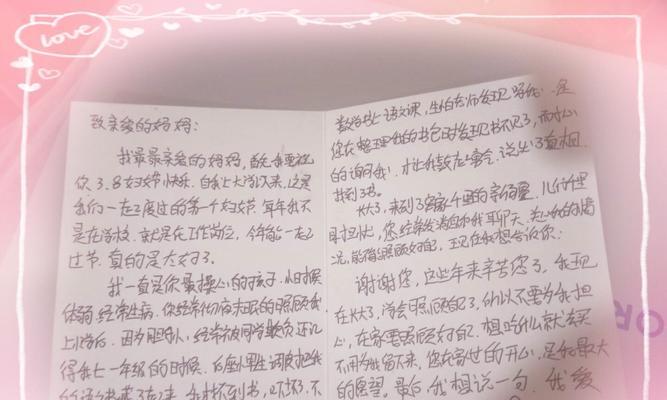 love
致亲爱的妈妈:
我最最亲爱的妈妈,首先我要祝
你3.8妇女节快乐。自我上大学以来,这是
我们一在2度过的第一个妇女节,每年我不
是在学校,就是在工作岗位,今年能一在2
过节,真的是太好了。
我一直是你最操心的孩子,小时候
体弱,经常生病,你经常彻夜未眠的照顾我,
上小学后,因为胆小,经常被同学欺负,还记
得我七一年级的时候,后座小男生调皮把我
的语文书藏了起来,我找不到书,
数学书上语文课,生怕老师发现骂我,是
您在整理我的书包时发现书不见了,而耐心
的询问我,才让我鼓起勇气,说出了真相,
找到了书。
长大了,来到了离家千里的
担忧,您经常发消息和我聊天,关心我的情
况,能否照顾好自己,现在我想告诉你:
谢谢您,这些年来辛苦您了,我现
在长大了,学会照顾自己了,所以不要为我担
心,在家要照顾好自己,想吃什么就去买
不用为我留下来,您在家过的开心,是我最大
的愿望。最后,我想说一句,我爱